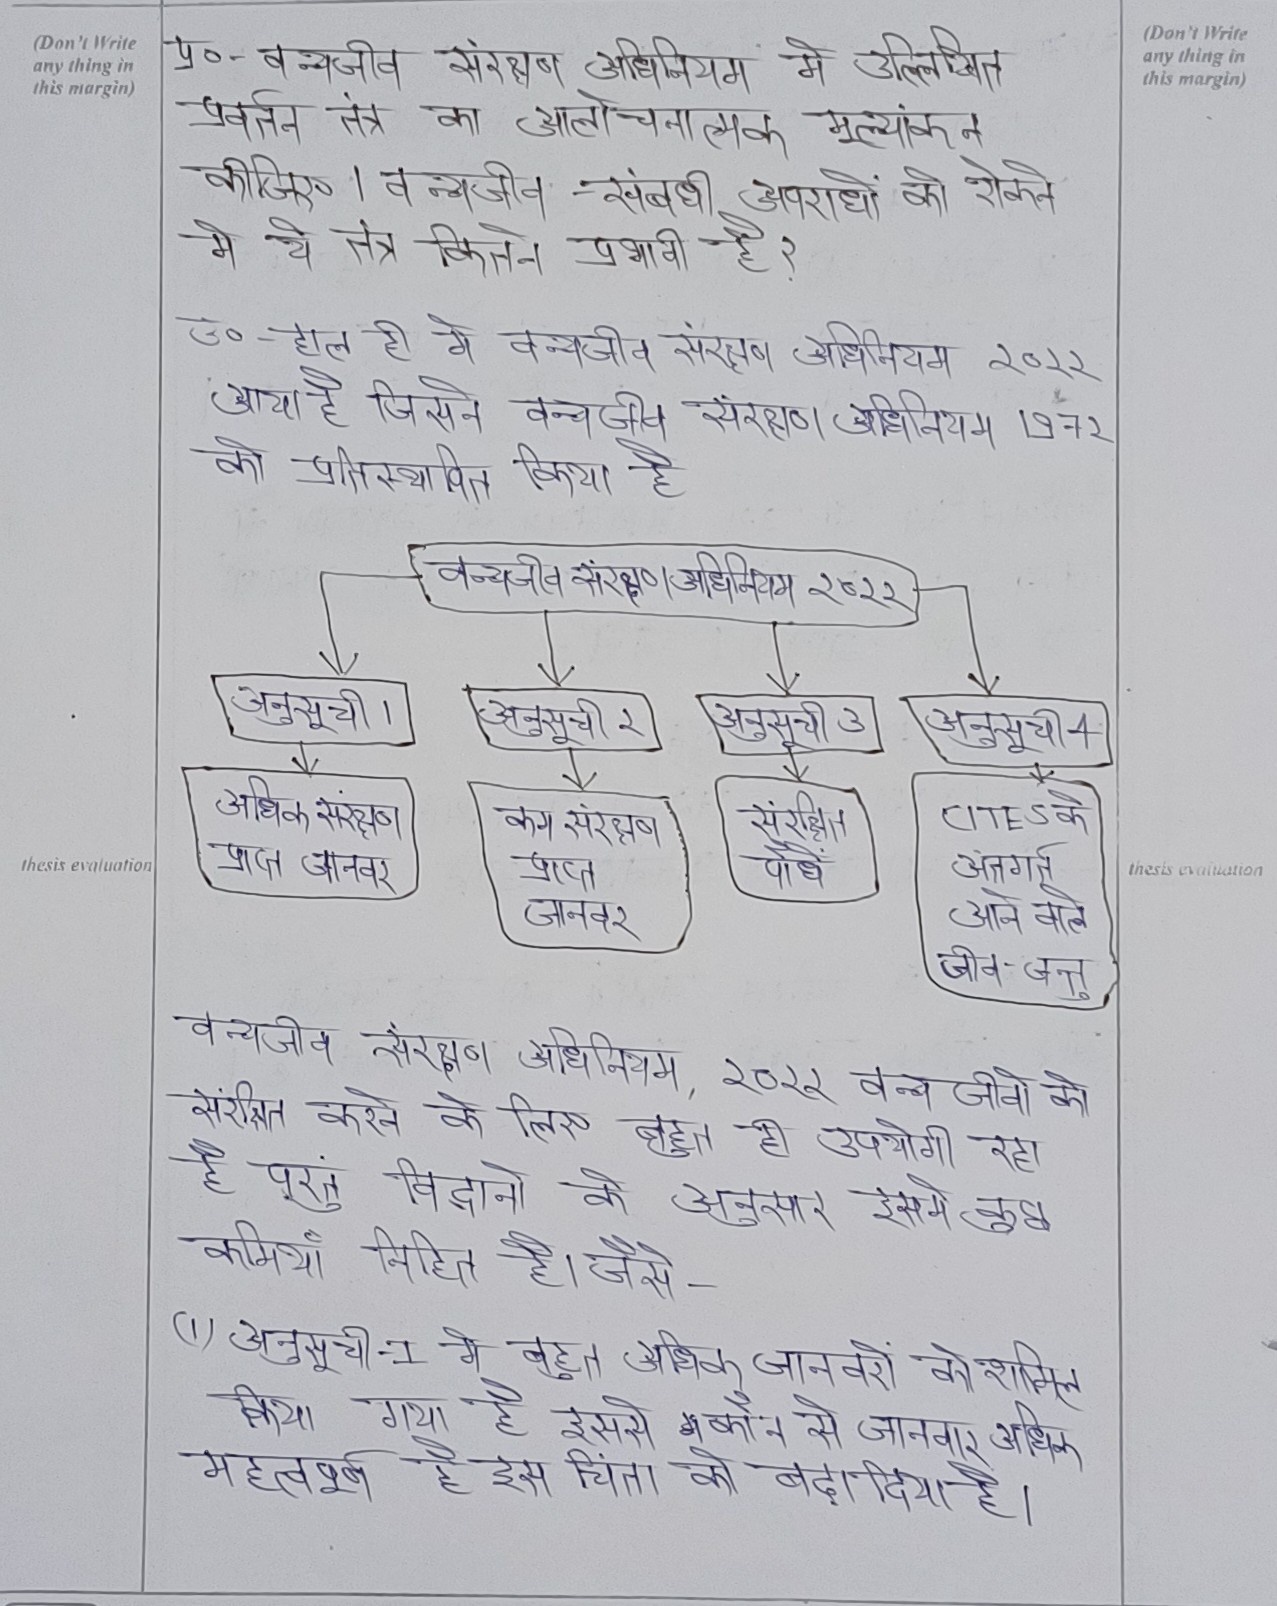 (Don't Write
any thing in
this margin)
(Don't Write
any thing in
this margin)
प्र०- वन्यजीव संरक्षण अधिनियम मे उल्लिखित
प्रवर्तन तंत्र का आलोचनात्मक मूल्यांकन
कीजिए। वन्यजीव -संबधी अपराधों को रोकने
मे ये तंत्र कितने प्रभावी है?
उ०- हाल ही मे वन्यजीव संरक्षण अधिनियम २०२२
आया है जिसने वन्यजीव संरक्षण अधिनियम 1972
को प्रतिस्थापित किया है
वन्यजीव संरक्षण अधिनियम २०२२
अनुसूची 1
अनुसूची २
अनुसूची 3
अनुसूची 4
अधिक संरक्षण
प्राप्त जानवर
कम संरक्षण
प्राप्त
जानवर
संरक्षित
पौधें
CITES के
अंतर्गत
आने वाले
जीव-जन्तु
thesis evaluation
thesis evaluation
वन्यजीव संरक्षण अधिनियम, २०२२ वन्य जीवो को
संरक्षित करने के लिए बहुत ही उपयोगी रहा
है परंतु विद्वानो के अनुसार इसमे कुछ
कमियाँ निहित है। जैसे -
(1) अनुसूची-I मे बहुत अधिक जानवरों को शामिल
किया गया है इससे कौन से जानवार अधिक
महत्वपूर्ण है इस चिंता को बढ़ा दिया है।